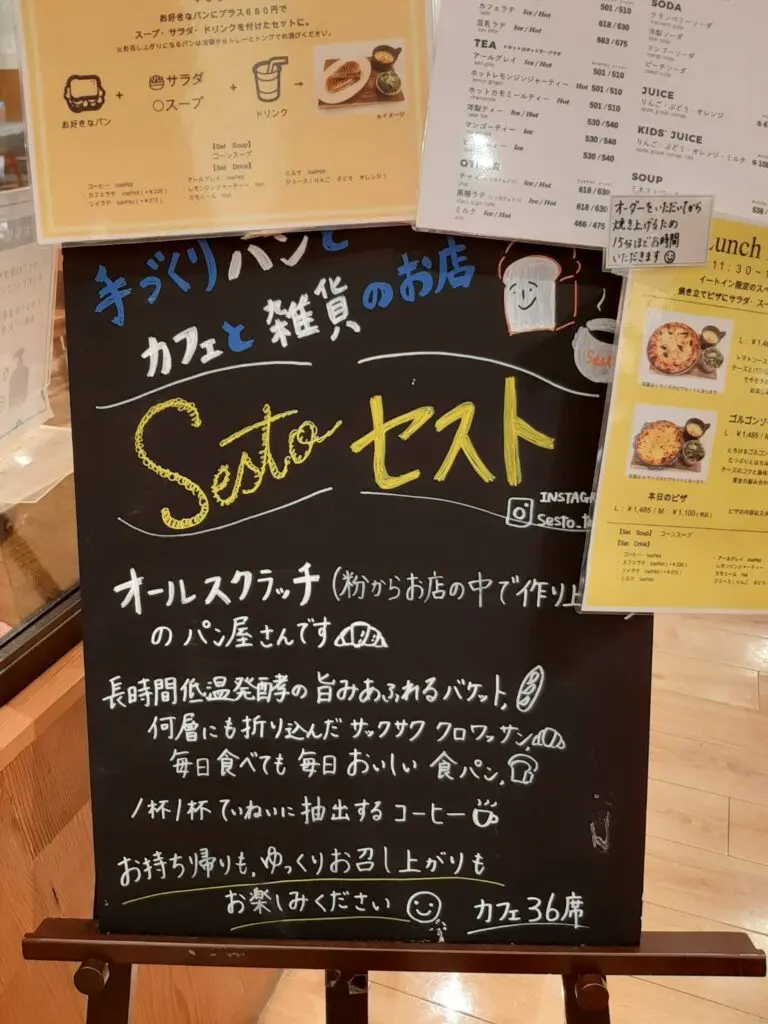 お好きなパンにプラス660円で
スープ・サラダ・ドリンクを付けたセットに。
※お召し上がりになるパンは店頭からトレーとトングでお選びください。
お好きなパン
+
サラダ
スープ
+
ドリンク
※イメージ
【Set Soup】
コーンスープ
【Set Drink】
コーヒー
カフェラテ
ソイラテ
アールグレイ
レモンジンジャーティー
カモミール
ミルク
ジュース(りんご、ぶどう、オレンジ)
カフェラテ Ice / Hot 501 / 510
豆乳ラテ Ice / Hot 618 / 630
663 / 675
TEA
アールグレイ Ice / Hot
ホットレモンジンジャーティー Hot 501 / 510
ホットカモミールティー Hot 501 / 510
洋梨ティー Ice 530 / 540
マンゴーティー Ice 530 / 540
530 / 540
チャイ Ice / Hot
黒糖ラテ Ice / Hot 618 / 630
ミルク Ice / Hot 466 / 475
SODA
クランベリーソーダ
洋梨ソーダ
マンゴーソーダ
ピーチソーダ
JUICE
りんご・ぶどう・オレンジ
KIDS' JUICE
りんご・ぶどう・オレンジ・ミルク
SOUP
オーダーをいただいてから
焼き上げるため
15分ほどお時間
いただきます
Lunch
11:30 - 1
イートイン限定のスペ
焼き立てピザにサラダ・スー
L: ¥1,4
トマトソース
ゴルゴンゾー
L: ¥1,485 / M
本日のピザ
L: ¥1,485 / M: ¥1,100(税込)
ピザの内容はスタ
【Set Soup】 コーンスープ
【Set Drink】
コーヒー
カフェラテ
ソイラテ
ミルク
アールグレイ
レモンジンジャーティー
カモミール
手づくりパンと
カフェと雑貨のお店
Sesto セスト
INSTAGR
Sesto_to
オールスクラッチ(粉からお店の中で作り上
のパン屋さんです
長時間低温発酵の旨みあふれるバゲット,
何層にも折り込んだサックサククロワッサン,
毎日食べても毎日おいしい食パン,
1杯1杯ていねいに抽出するコーヒー
お持ち帰りも,ゆっくりお召し上がりも
お楽しみください
カフェ36席